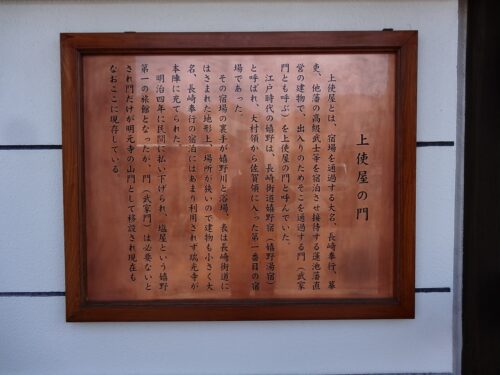 上使屋の門
上使屋とは、宿場を通過する大名、長崎奉行、幕
吏、他藩の高級武士等を宿泊させ接待する蓮池藩直
営の建物で、出入りのためそこを通過する門（武家
門とも呼ぶ）を上使屋の門と呼んでいた。
江戸時代の嬉野は、長崎街道嬉野宿（嬉野湯宿）
と呼ばれ、大村領から佐賀領に入った第一番目の宿
場であった。
その宿場の裏手が嬉野川と浴場、表は長崎街道に
はさまれた地形上、場所が狭いので建物も小さく大
名、長崎奉行の宿泊にはあまり利用されず瑞光寺が
本陣に充てられた。
明治四年に民間に払い下げられ、塩屋という嬉野
第一の旅館となったが、門（武家門）は必要ないと
され門だけが明元寺の山門として移設され現在も
なおここに現存している。